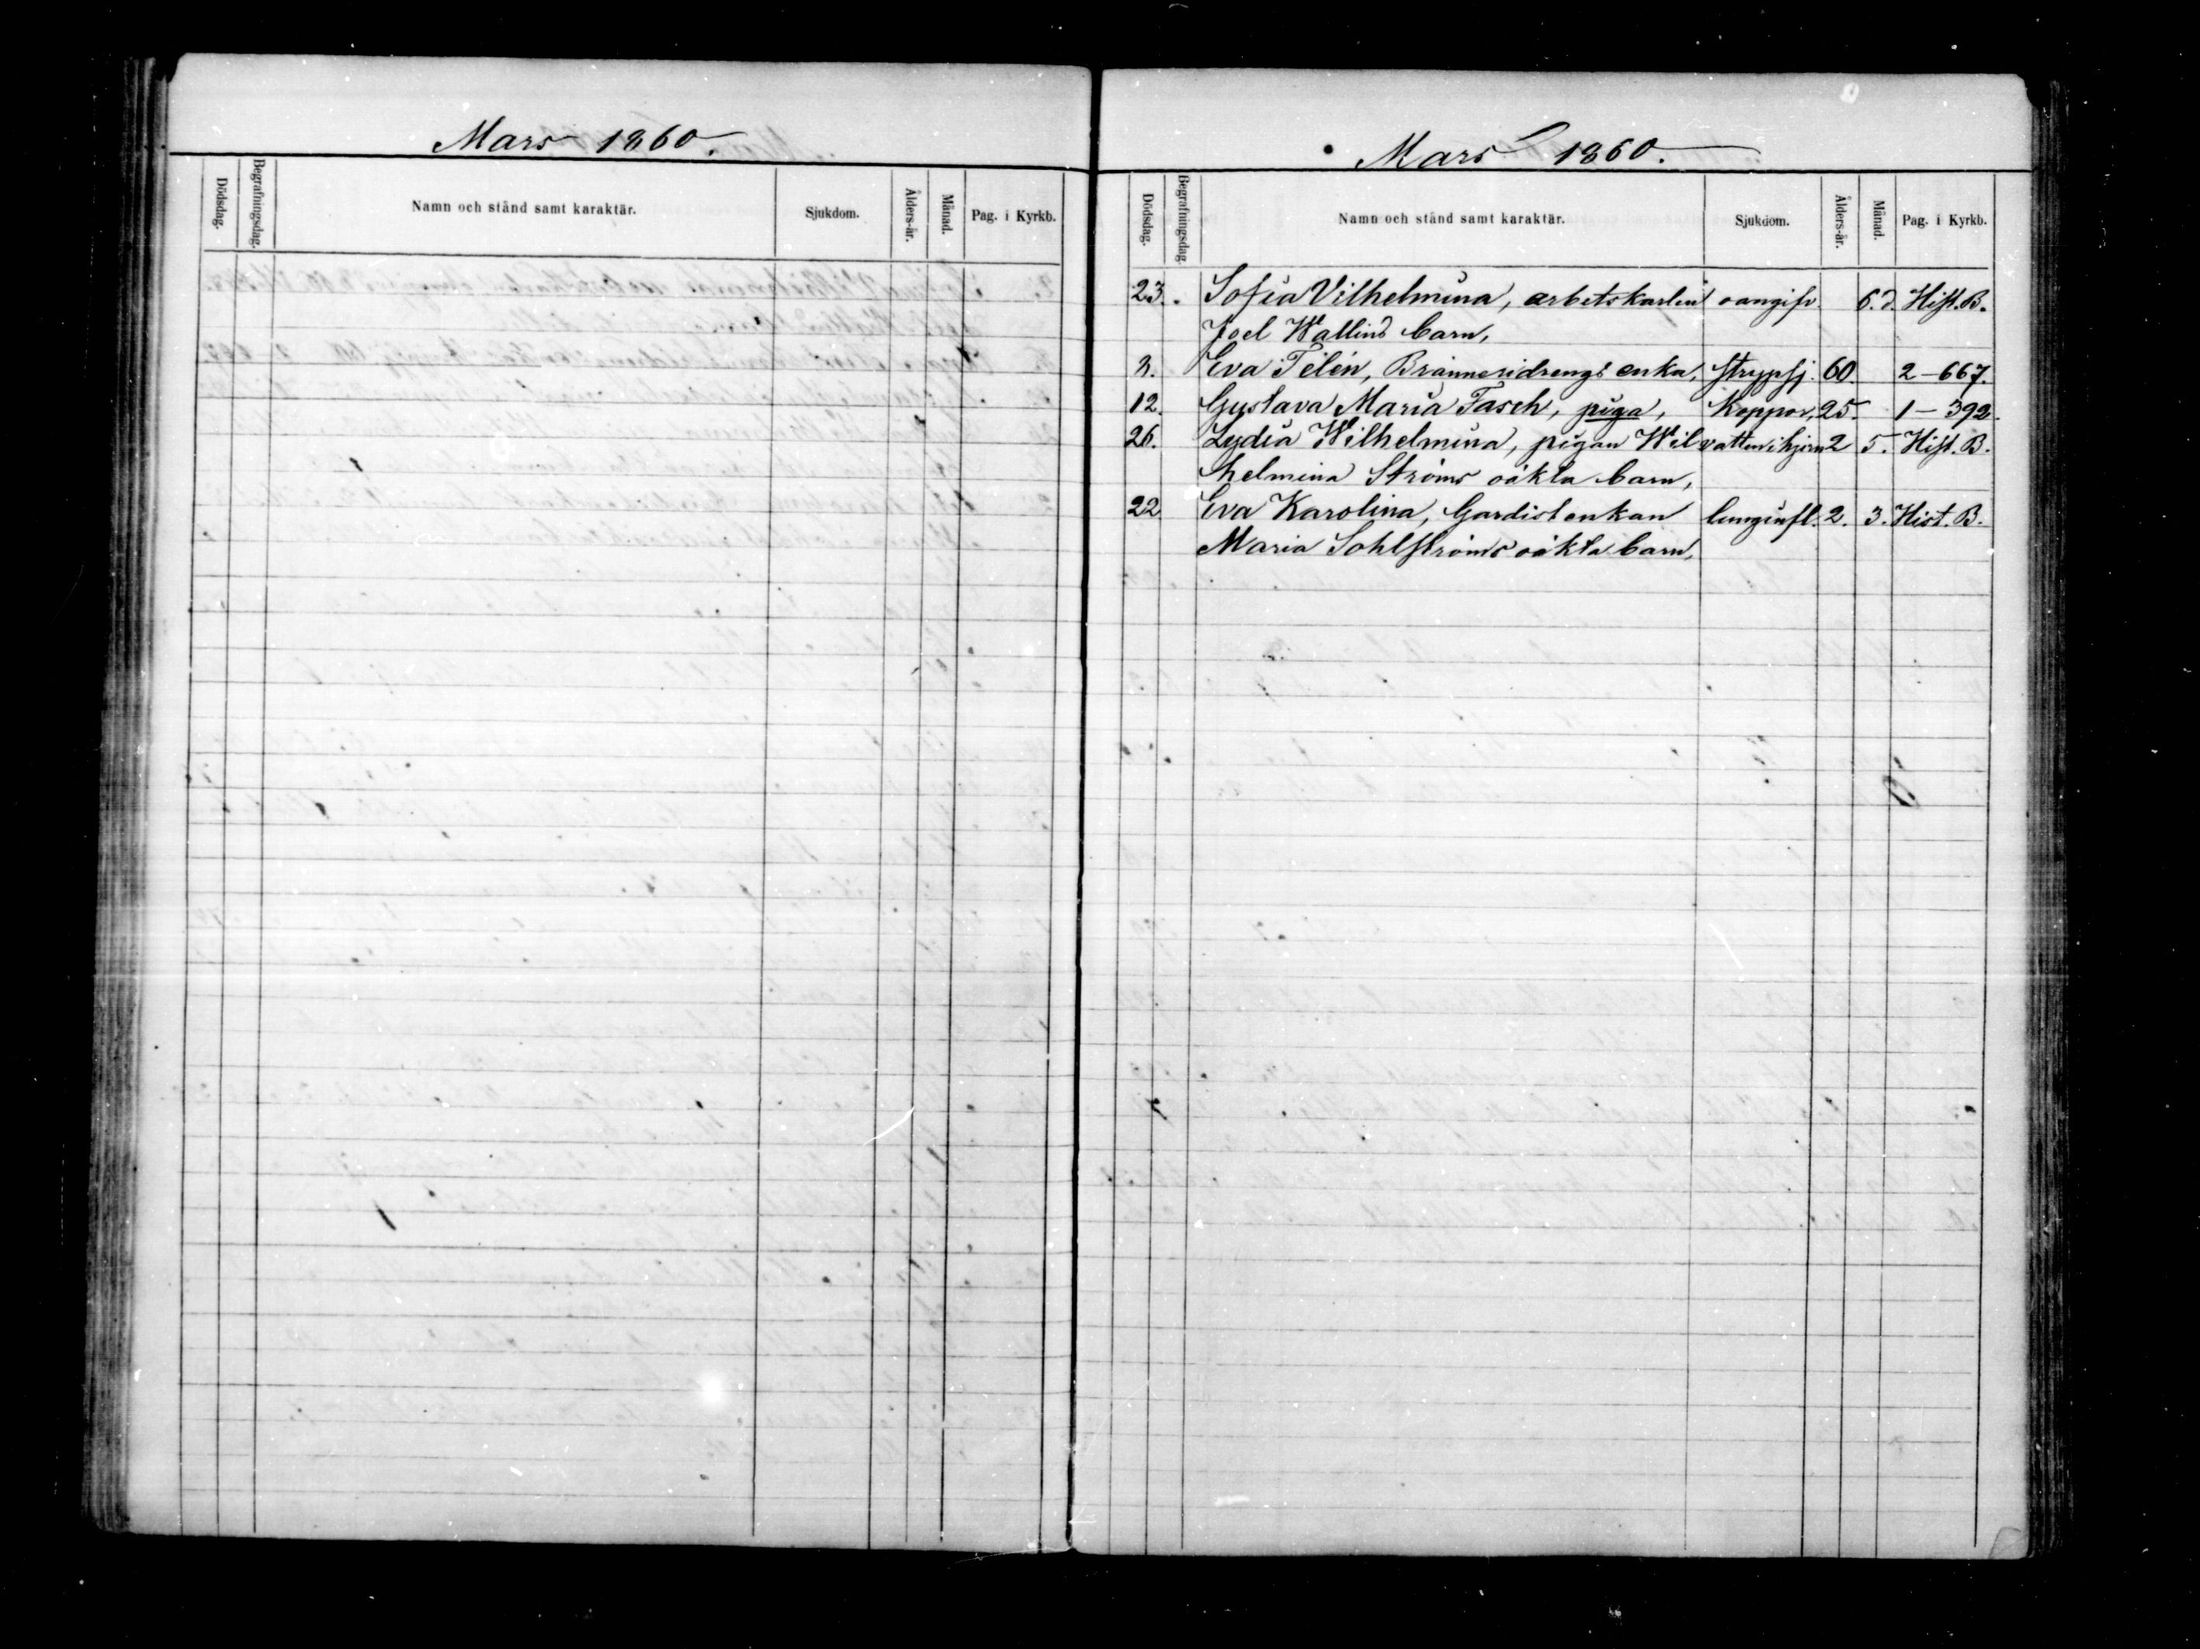 Mars 1860.
Dödsdag. Begrafningsdag. Namn och stånd samt karaktär. Sjukdom. Ålders-år. Månad. Pag. i Kyrkb.
Mars 1860.
Dödsdag. Begrafningsdag. Namn och stånd samt karaktär. Sjukdom. Ålders-år. Månad. Pag. i Kyrkb.
23. Sofia Vilhelmina, arbetskarlen oangifv. 6.d. Hist. B.
Joel Wallins barn,
3. Eva Tilén, Bränneridrengs enka, strypsj. 60. 2-667.
12. Gustava Maria Fasch, piga, Koppor, 25. 1-392.
26. Lydia Wilhelmina, pigan Wil vatten i hjern 2 5. Hist. B.
helmina Ströms oäkta barn,
22. Eva Karolina, Gardistenkan lunginfl. 2. 3. Hist. B.
Maria Sohlströms oäkta barn,